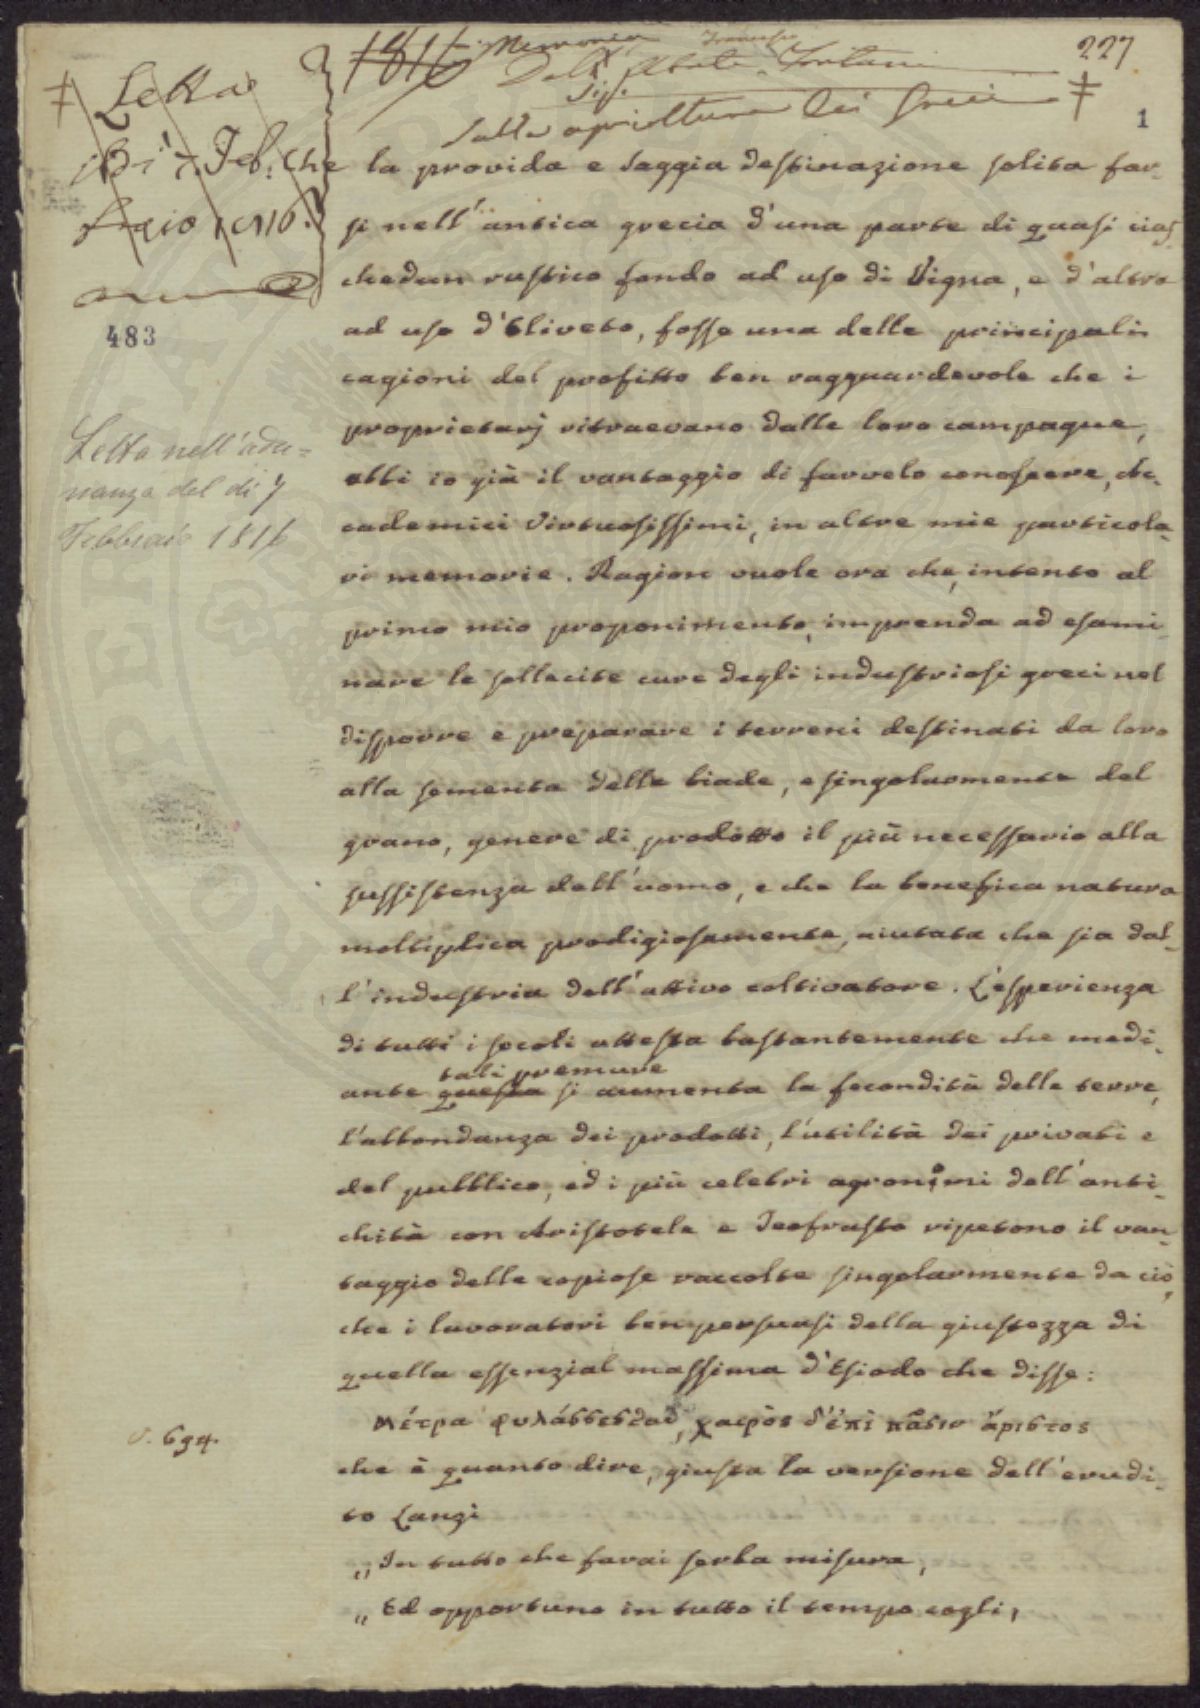 227
1816. Memoria
Del Sig. Abate Francesco Fontani
sulla agricoltura dei Greci
1
Letta
il dì 7. Feb:
braio 1816.
483
Letta nell'adu=
nanza del di 7
Febbraio 1816
Che la provida e saggia destinazione solita far-
si nell'antica grecia d'una parte di quasi cias-
chedun rustico fondo ad uso di Vigna, e d'altra
ad uso d'Oliveto, fosse una delle principali
cagioni del profitto ben ragguardevole che i
proprietarj ritraevano dalle loro campagne,
ebbi io già il vantaggio di farvelo conoscere, Ac-
cademici Virtuosissimi, in altre mie particola-
ri memorie. Ragion vuole ora che, intento al
primo mio proponimento, imprenda ad esami-
nare le sollecite cure degli industriosi greci nel
disporre e preparare i terreni destinati da loro
alla sementa delle biade, e singolarmente del
grano, genere di prodotto il più necessario alla
sussistenza dell'uomo, e che la benefica natura
moltiplica prodigiosamente, aiutata che sia dal-
l'industria dell'attivo coltivatore. L'esperienza
di tutti i secoli attesta bastantemente che medi-
tali premure
ante questa si aumenta la fecondità delle terre,
l'abbondanza dei prodotti, l'utilità dei privati e
del pubblico, ed i più celebri agronomi dell'anti-
chità con Aristotele e Teofrasto ripetono il van-
taggio delle copiose raccolte singolarmente da ciò,
che i lavoratori ben persuasi della giustezza di
quella essenzial massima d'Esiodo che disse:
v. 694.
Μέτρα φυλάσσεσθαι, χαιρὸς δ'ἐπὶ πᾶσιν ἄριστος
che è quanto dire, giusta la versione dell'erudi-
to Lanzi
„ In tutto che farai serba misura,
„ Ed opportuno in tutto il tempo cogli,